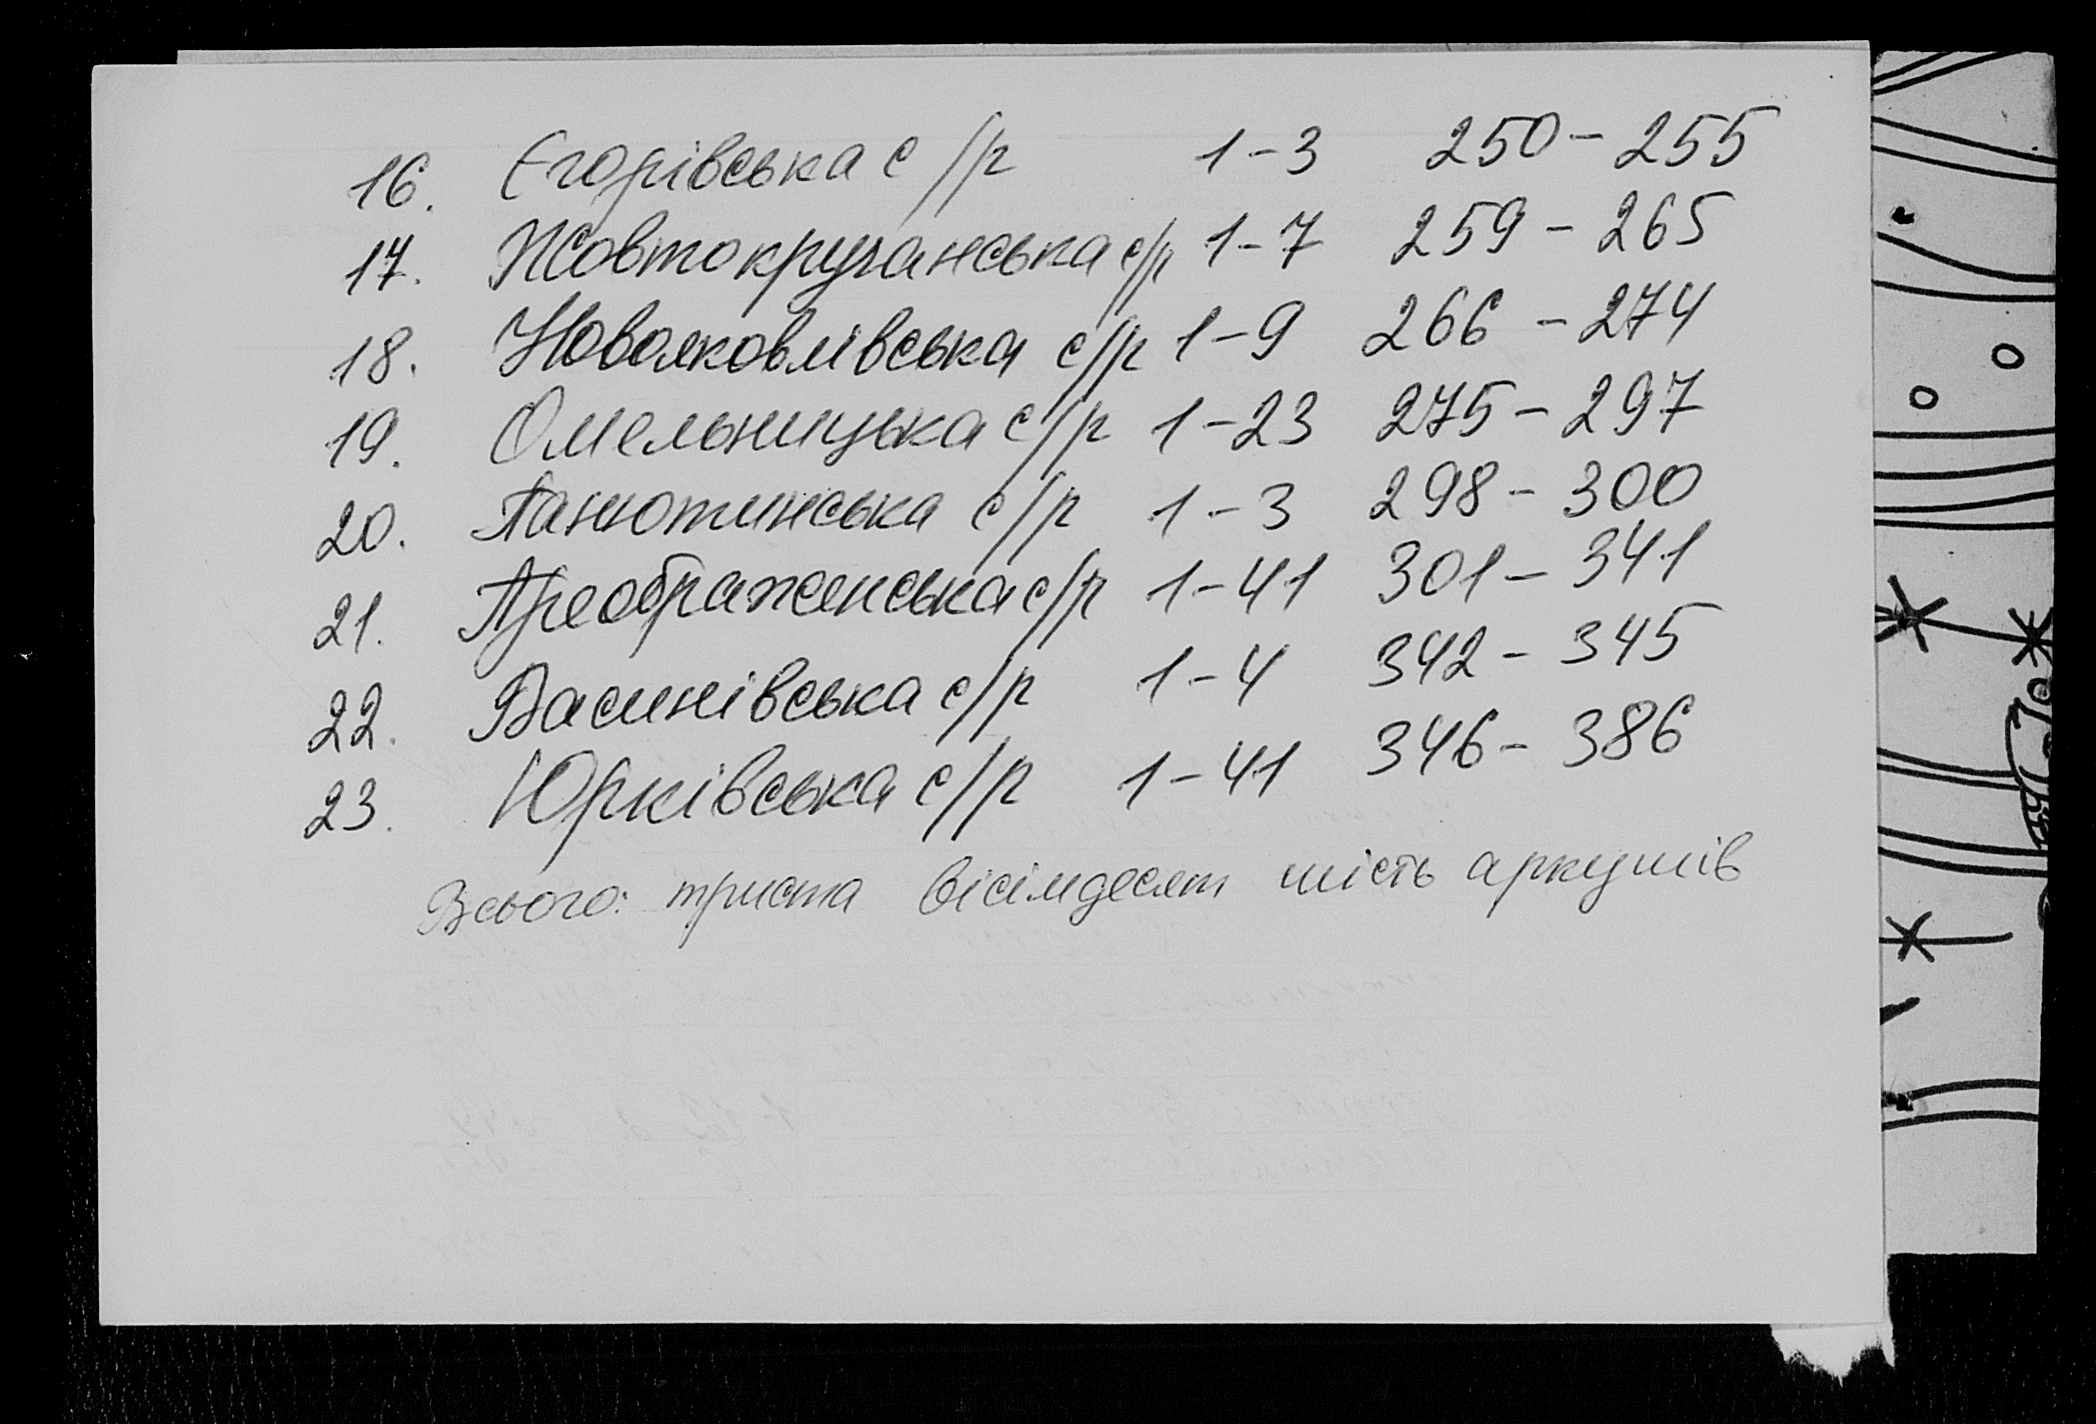 16. Єгорівська с/р 1-3 250-255
17. Жовтокручанська с/р 1-7 259-265
18. Новояковлівська с/р 1-9 266-274
19. Омельницька с/р 1-23 275-297
20. Панютинська с/р 1-3 298-300
21. Преображенська с/р 1-41 301-341
22. Васинівська с/р 1-4 342-345
23. Юрківська с/р 1-41 346-386
Всього: триста вісімдесят шість аркушів